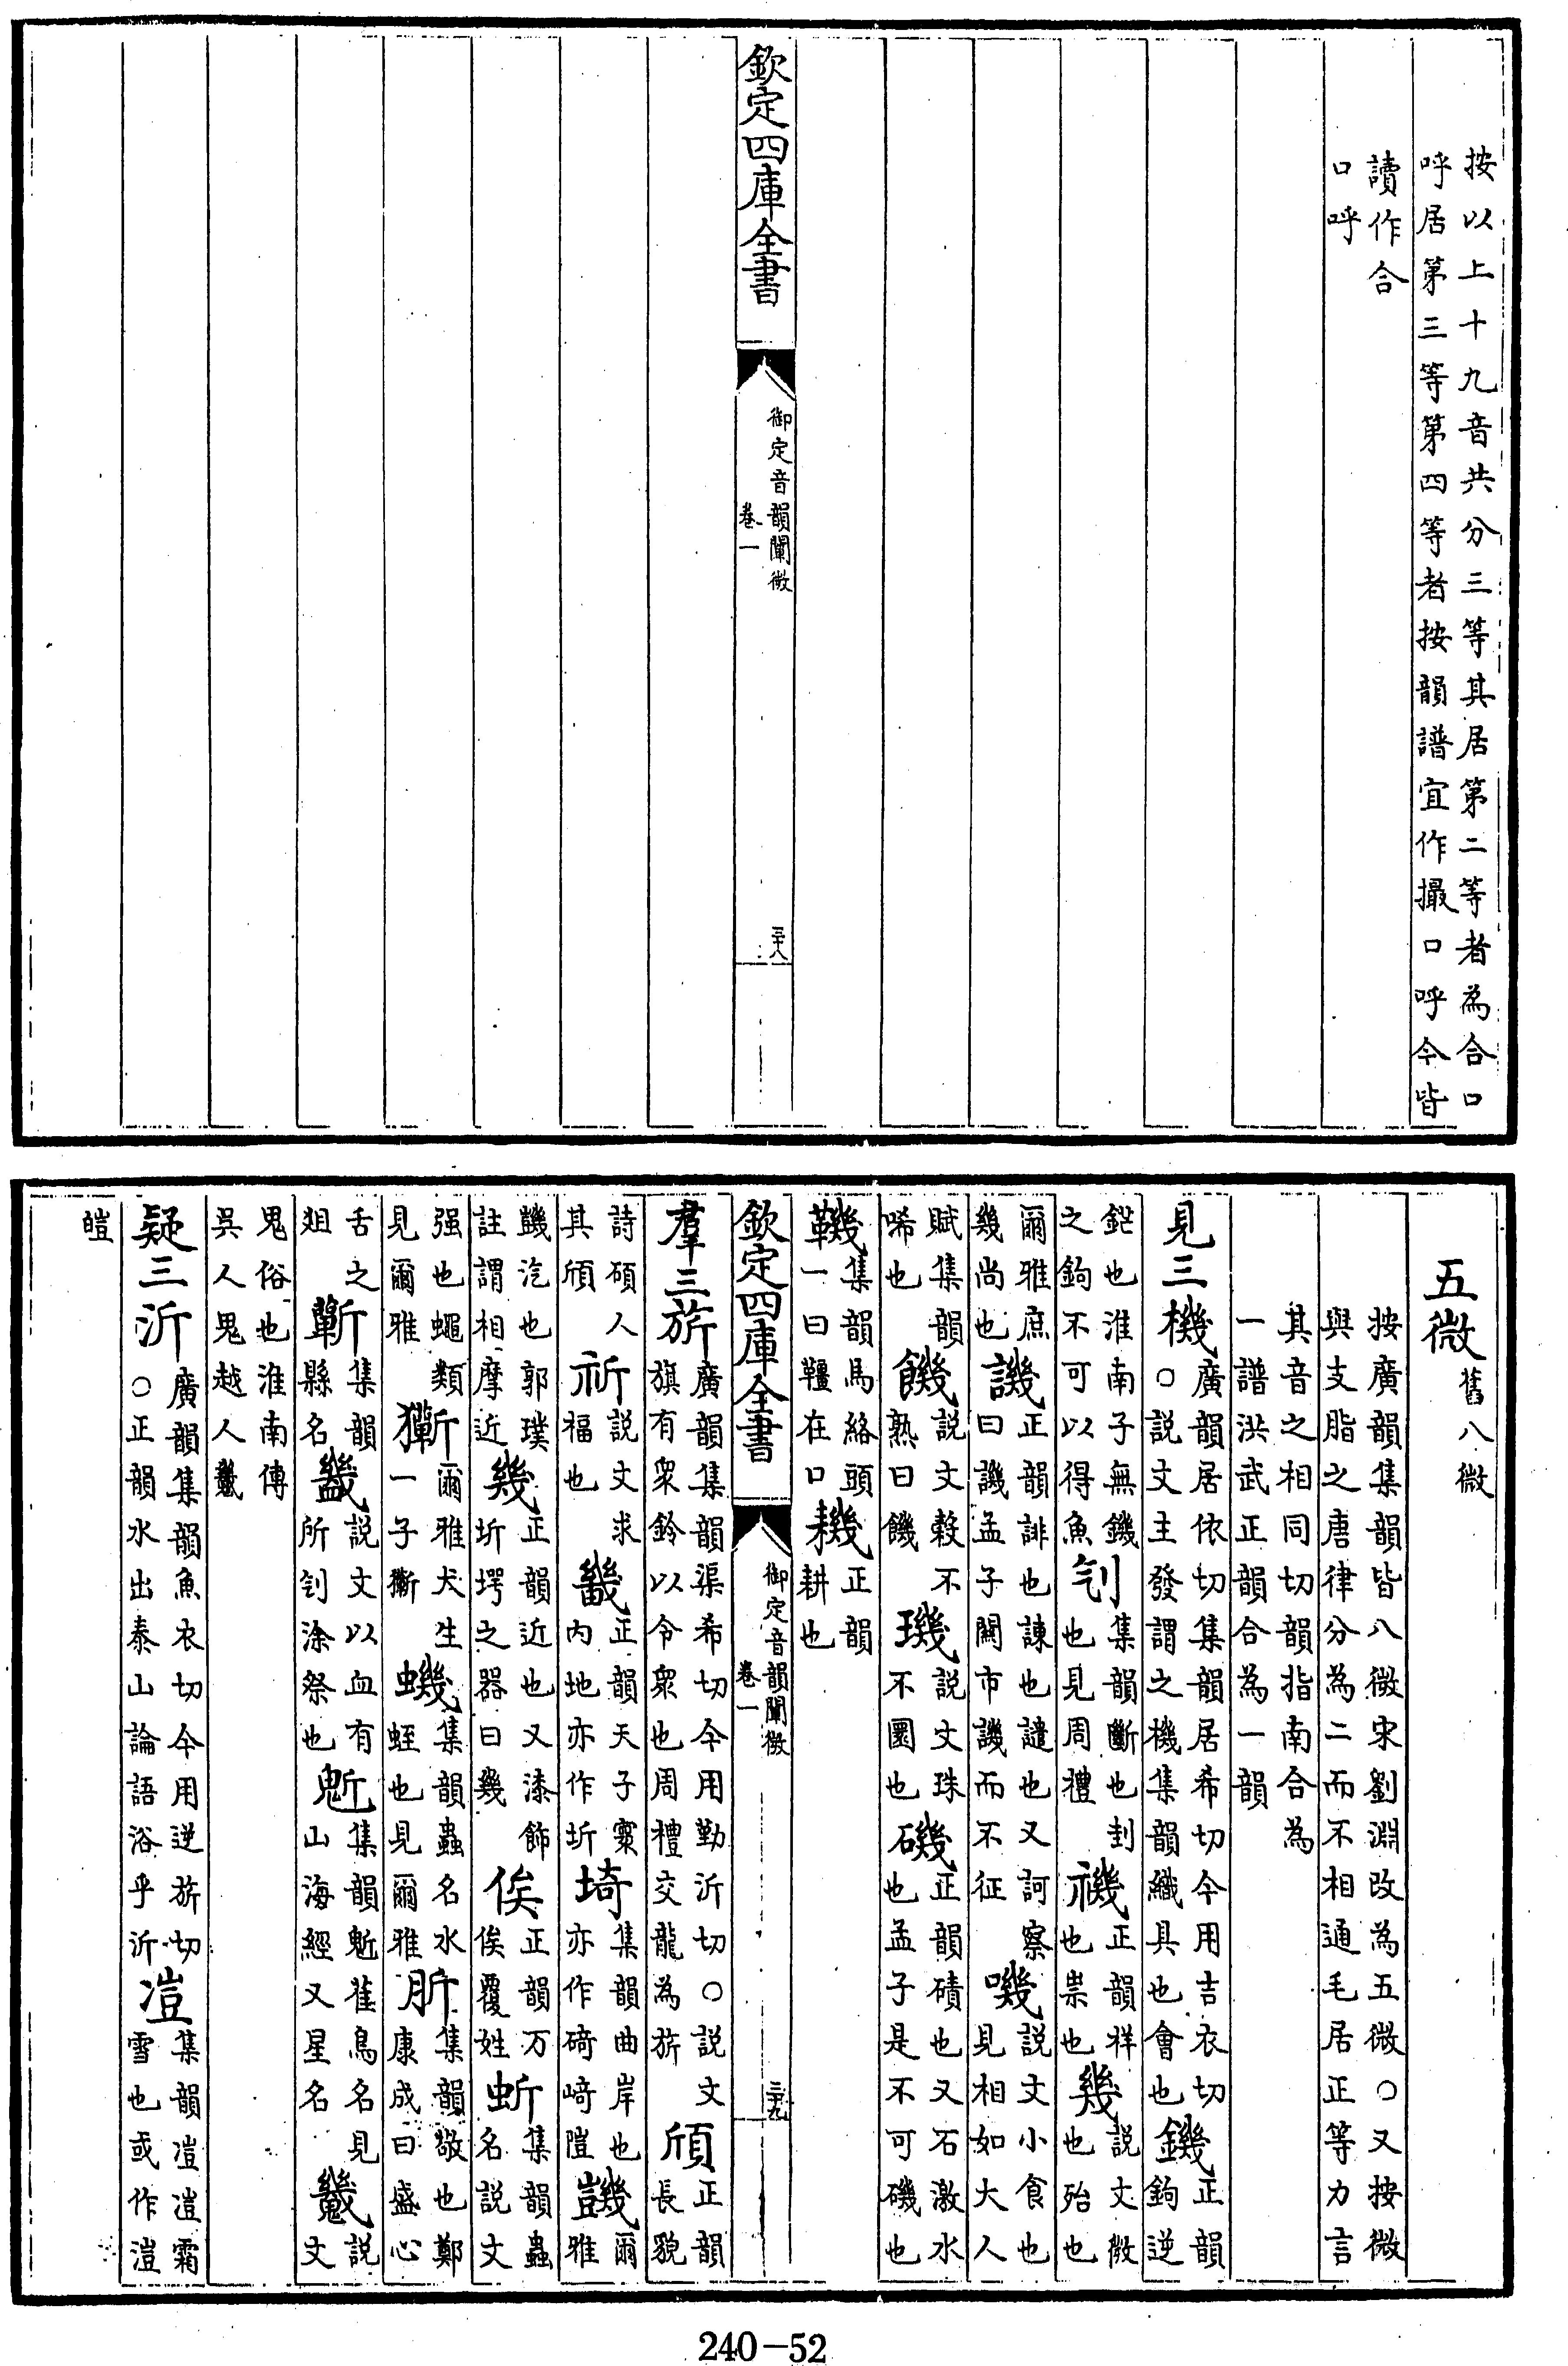 按以上十九音共分三等其居第二等者為合口
呼居第三等第四等者按韻譜宜作撮口呼今皆
讀作合
口呼
欽定四庫全書
御定音韻闡微
卷一
三十八
五微舊八微
按廣韻集韻皆八微宋劉淵改為五微○又按微
與支脂之唐律分為二而不相通毛居正等力言
其音之相同切韻指南合為
一譜洪武正韻合為一韻
見三機廣韻居依切集韻居希切今用吉衣切
○説文主發謂之機集韻織具也會也鐖正韻鉤逆
鋩也淮南子無鐖
之鉤不可以得魚刉集韻斷也刲
也見周禮禨正韻祥
也祟也幾説文微
也殆也
爾雅庶
幾尚也譏正韻誹也諫也譴也又訶察
曰譏孟子關市譏而不征嘰説文小食也
見相如大人
賦集韻
唏也饑説文穀不
熟曰饑璣説文珠
不圜也磯正韻磧也又石激水
也孟子是不可磯也
鞿集韻馬絡頭
一曰韁在口𦓲正韻
耕也
欽定四庫全書
御定音韻闡微
卷一
三十九
羣三旂廣韻集韻渠希切今用勤沂切○説文
旗有衆鈴以令衆也周禮交龍為旂頎正韻
長貌
詩碩人
其頎祈説文求
福也畿正韻天子寰
内地亦作圻埼集韻曲岸也
亦作碕崎隑𧯸爾
雅
𧯸汔也郭璞
註謂相摩近幾正韻近也又漆飾
圻堮之器曰幾俟正韻万
俟覆姓蚚集韻蟲
名説文
强也蠅類
見爾雅㺜爾雅犬生
一子㺜蟣集韻蟲名水
蛭也見爾雅肵集韻敬也鄭
康成曰盛心
舌之
俎蘄集韻
縣名𧗱説文以血有
所刉涂祭也𩲃集韻𩲃雀鳥名見
山海經又星名䰇説
文
鬼俗也淮南傳
吳人鬼越人䰇
疑三沂廣韻集韻魚衣切今用逆旂切
○正韻水出泰山論語浴乎沂凒集韻凒凒霜
雪也或作溰
皚
240-52